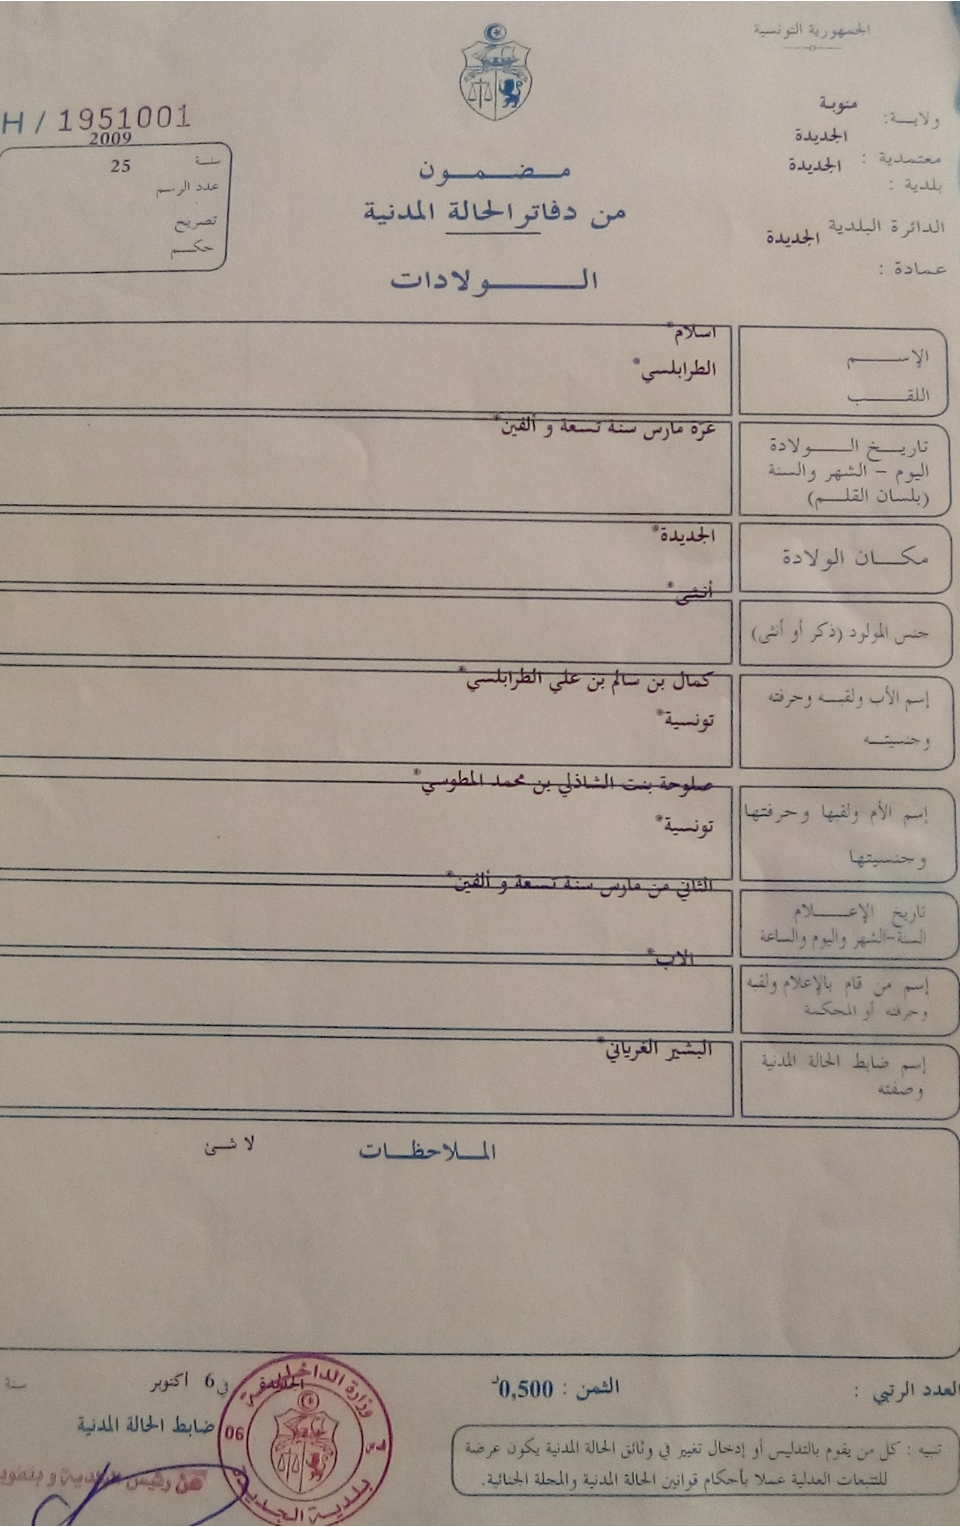 الجمهورية التونسية
ولاية: منوبة
معتمدية: الجديدة
بلدية: الجديدة
الدائرة البلدية الجديدة
عمادة:
H / 1951001
سنة 2009
عدد الرسم 25
تصريح
حكم
مضمون
من دفاتر الحالة المدنية
الولادات
الإسم اسلام*
اللقب الطرابلسي*
تاريخ الولادة غرة مارس سنة تسعة و ألفين*
اليوم - الشهر والسنة
(بلسان القلم)
مكان الولادة الجديدة*
جنس المولود (ذكر أو أنثى) أنثى*
إسم الأب ولقبه وحرفته كمال بن سالم بن علي الطرابلسي*
وجنسيته تونسية*
إسم الأم ولقبها وحرفتها صلوحة بنت الشاذلي بن محمد المطوسي*
وجنسيتها تونسية*
تاريخ الإعلام الثاني من مارس سنة تسعة و ألفين*
السنة-الشهر واليوم والساعة
إسم من قام بالإعلام ولقبه الاب*
وحرفته أو المحكمة
إسم ضابط الحالة المدنية البشير الغرياني*
وصفته
الملاحظات لا شئ
العدد الرتبي :
الثمن : 0,500د
في 6 اكتوبر سنة
ضابط الحالة المدنية
تنبيه : كل من يقوم بالتدليس أو إدخال تغيير في وثائق الحالة المدنية يكون عرضة
للتتبعات العدلية عملا بأحكام قوانين الحالة المدنية والمجلة الجنائية.
وزارة الداخلية
06
بلدية الجديدة
عن رئيس البلدية و